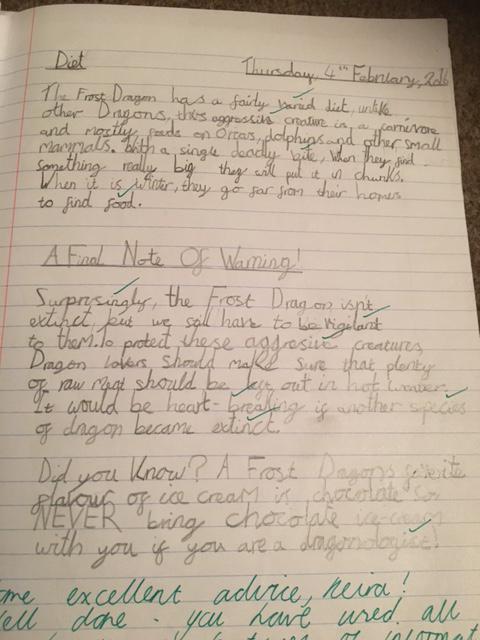 Diet
Thursday, 4th February, 2016
The Frost Dragon has a fairly varied diet, unlike
other Dragons, this aggressive creature is a carnivore
and mostly feeds on Orcas, dolphins and other small
mammals. With a single deadly bite, When they find
something really big they will put it in chunks.
When it is winter, they go far from their homes
to find food.
A Final Note Of Warning!
Surprysingly, the Frost Dragon isn't
extinct, but we still have to be vigilant
to them. To protect these aggresive creatures,
Dragon lovers should make sure that plenty
of raw meat should be left out in hot weaver.
It would be heart-breaking if another species
of dragon became extinct.
Did you Know? A Frost Dragons
flavour of ice cream is chocolate so
NEVER bring chocolate ice-cream
with you if you are a dragonologist!
me excellent advice, Keira!
ell done - you have used all